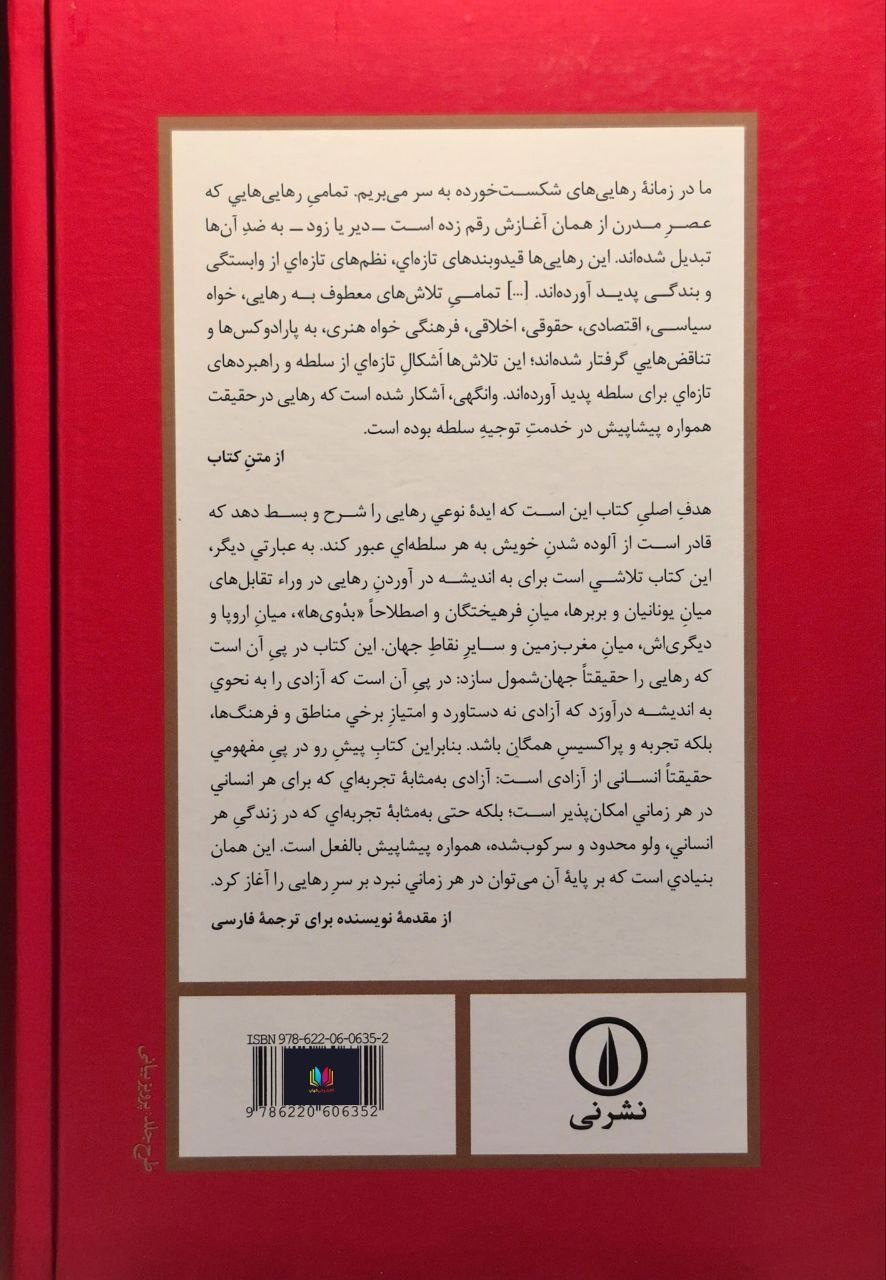 ما در زمانهٔ رهایی‌های شکست‌خورده به سر می‌بریم. تمامیِ رهایی‌هایي که
عصرِ مدرن از همان آغازش رقم زده است ــ دیر یا زود ــ به ضدِ آن‌ها
تبدیل شده‌اند. این رهایی‌ها قیدوبندهای تازه‌اي، نظم‌های تازه‌اي از وابستگی
و بندگی پدید آورده‌اند. [...] تمامیِ تلاش‌های معطوف به رهایی، خواه
سیاسی، اقتصادی، حقوقی، اخلاقی، فرهنگی خواه هنری، به پارادوکس‌ها و
تناقض‌هایي گرفتار شده‌اند؛ این تلاش‌ها اَشکالِ تازه‌اي از سلطه و راهبردهای
تازه‌اي برای سلطه پدید آورده‌اند. وانگهی، آشکار شده است که رهایی در حقیقت
همواره پیشاپیش در خدمتِ توجیهِ سلطه بوده است.
از متنِ کتاب
هدفِ اصلیِ کتاب این است که ایدهٔ نوعي رهایی را شرح و بسط دهد که
قادر است از آلوده شدنِ خویش به هر سلطه‌اي عبور کند. به عبارتي دیگر،
این کتاب تلاشي است برای به اندیشه در آوردنِ رهایی در وراء تقابل‌های
میانِ یونانیان و بربرها، میانِ فرهیختگان و اصطلاحاً «بدْوی‌ها»، میانِ اروپا و
دیگری‌اش، میانِ مغرب‌زمین و سایرِ نقاطِ جهان. این کتاب در پیِ آن است
که رهایی را حقیقتاً جهان‌شمول سازد: در پیِ آن است که آزادی را به نحوي
به اندیشه درآورَد که آزادی نه دستاورد و امتیازِ برخي مناطق و فرهنگ‌ها،
بلکه تجربه و پراکسیسِ همگان باشد. بنابراین کتابِ پیشِ رو در پیِ مفهومي
حقیقتاً انسانی از آزادی است: آزادی به‌مثابهٔ تجربه‌اي که برای هر انساني
در هر زماني امکان‌پذیر است؛ بلکه حتی به‌مثابهٔ تجربه‌اي که در زندگیِ هر
انساني، ولو محدود و سرکوب‌شده، همواره پیشاپیش بالفعل است. این همان
بنیادي است که بر پایهٔ آن می‌توان در هر زماني نبرد بر سرِ رهایی را آغاز کرد.
از مقدمهٔ نویسنده برای ترجمهٔ فارسی
نشرنی
ISBN 978-622-06-0635-2
9 786220 606352
طرح جلد: پرویز بیانی